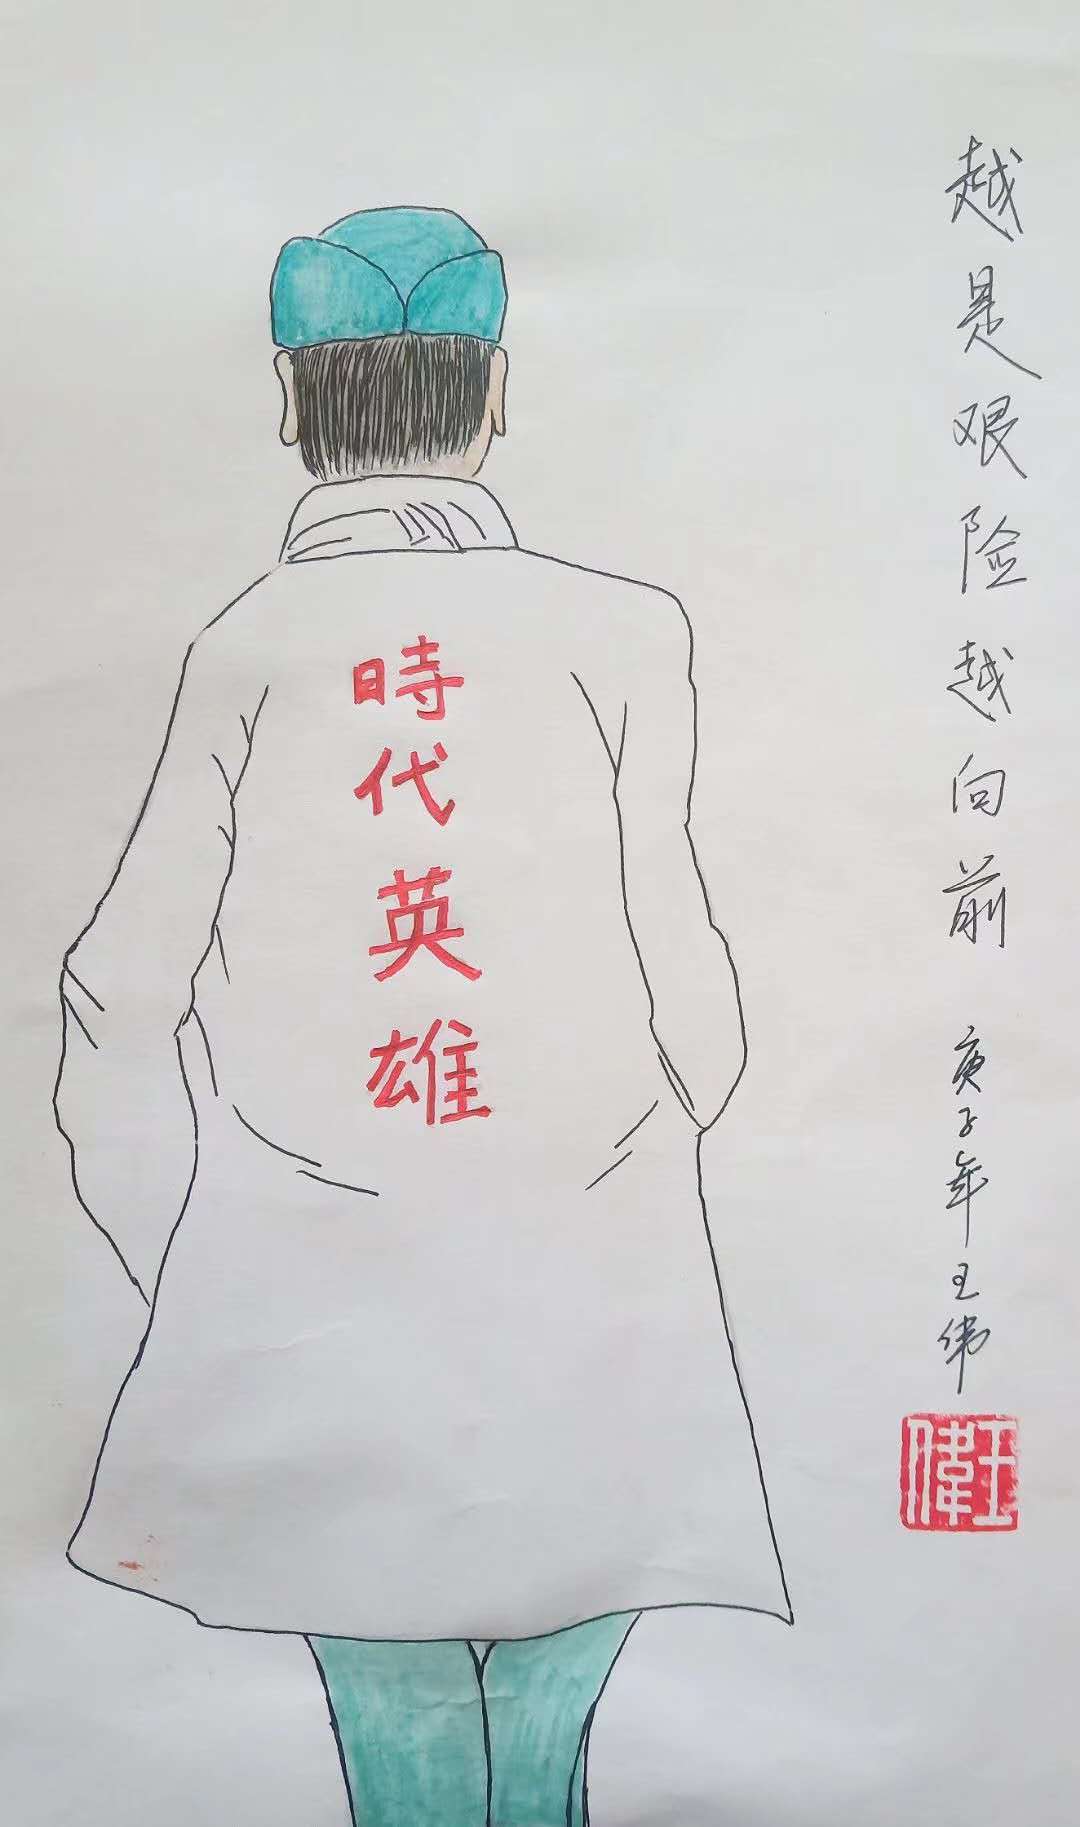 越是艰险越向前
庚子年王伟
王偉
時代英雄